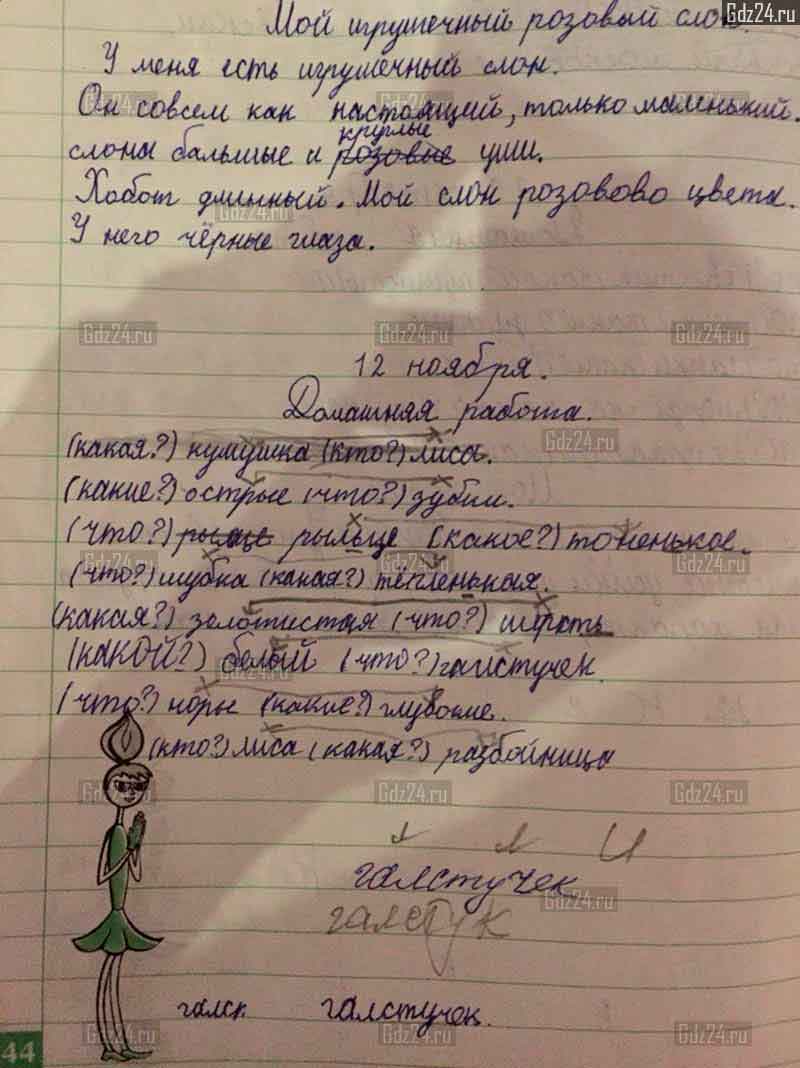 Gdz24.ru
Мой игрушечный розовый слон.
У меня есть игрушечный слон.
Он совсем как настоящий, только маленький.
круглые
слона бальшие и розовые уши.
Хобот длинный. Мой слон розовово цвета.
У него чёрные глаза.
12 ноября.
Домашняя работа.
(какая?) кумушка (кто?) лиса.
(какие?) острые (что?) зубки.
(что?) рыльце (какое?) тоненькое.
(что?) шубка (какая?) тёпленькая.
(какая?) золотистая (что?) шерсть
(какой?) белый (что?) галстучек.
(что?) норы (какие?) глубокие.
(кто?) лиса (какая?) разбойница
галстучек
галстук
галск галстучек.
44